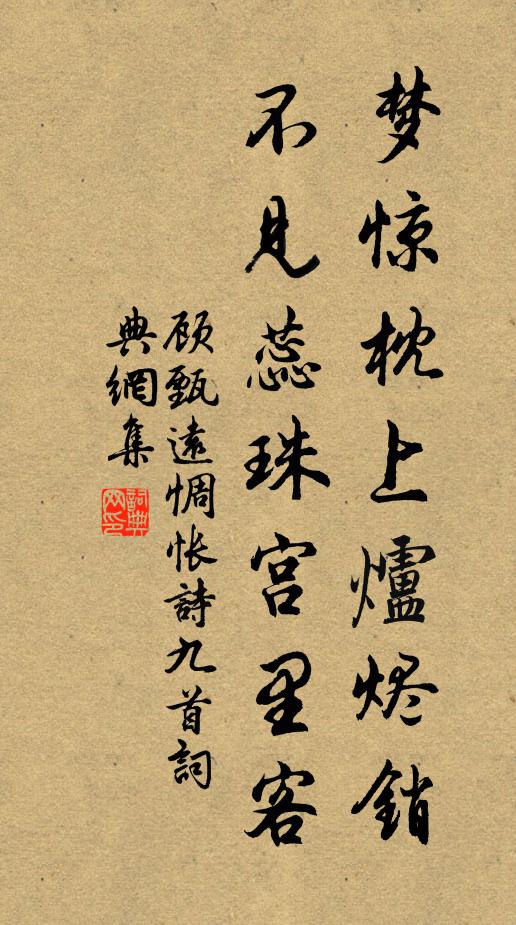 梦惊枕上爐烬銷
不见蕊珠宫里客
顾甄遠惆怅詩九首詞
典網集
詞典網印